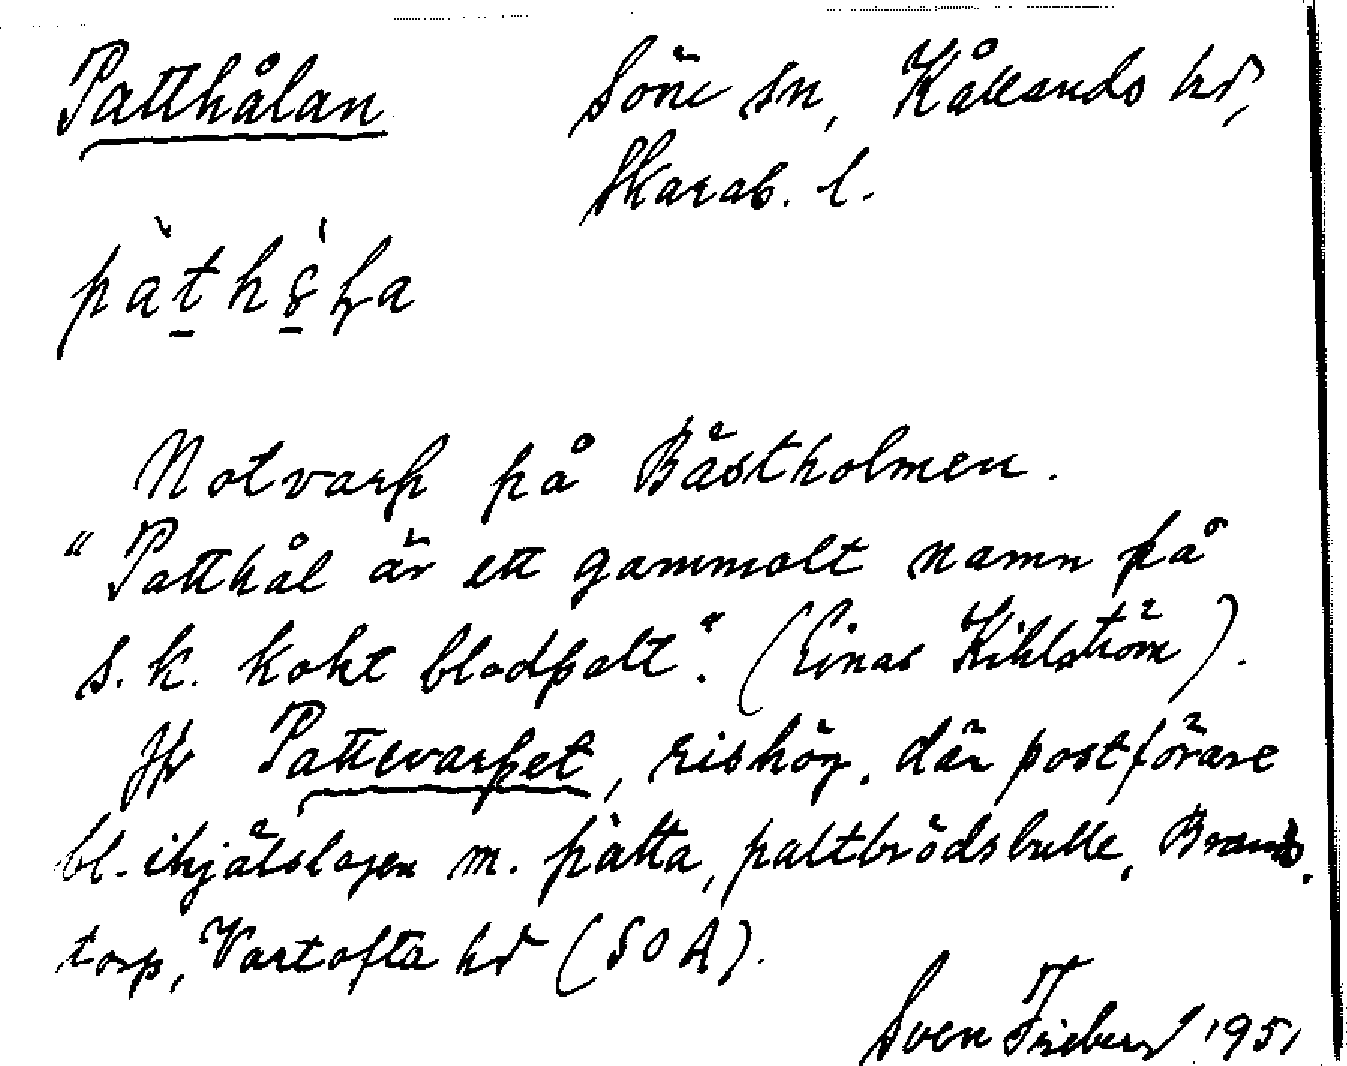 Patthålan Söne sn, Kållands hd,
Skarab. l.
Notvarp på Båstholmen.
"Patthål är ett gammalt namn på
s.k. kokt bladpalt". (Einar Kihlström).
Jfr Pattevarpet, rishög, där postförare
bl. ihjälslagen m. pàtta, paltbrödsbulle, Brands-
torp, Vartofta hd (SOA).
Sven Friberg 1951